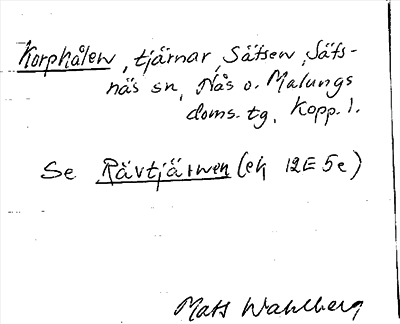 Korphålen, tjärnar, Sätsen, Säfs-
näs sn, Nås o. Malungs
doms. tg, Kopp. l.
Se Rävtjärnen (ek 12E 5e)
Mats Wahlberg